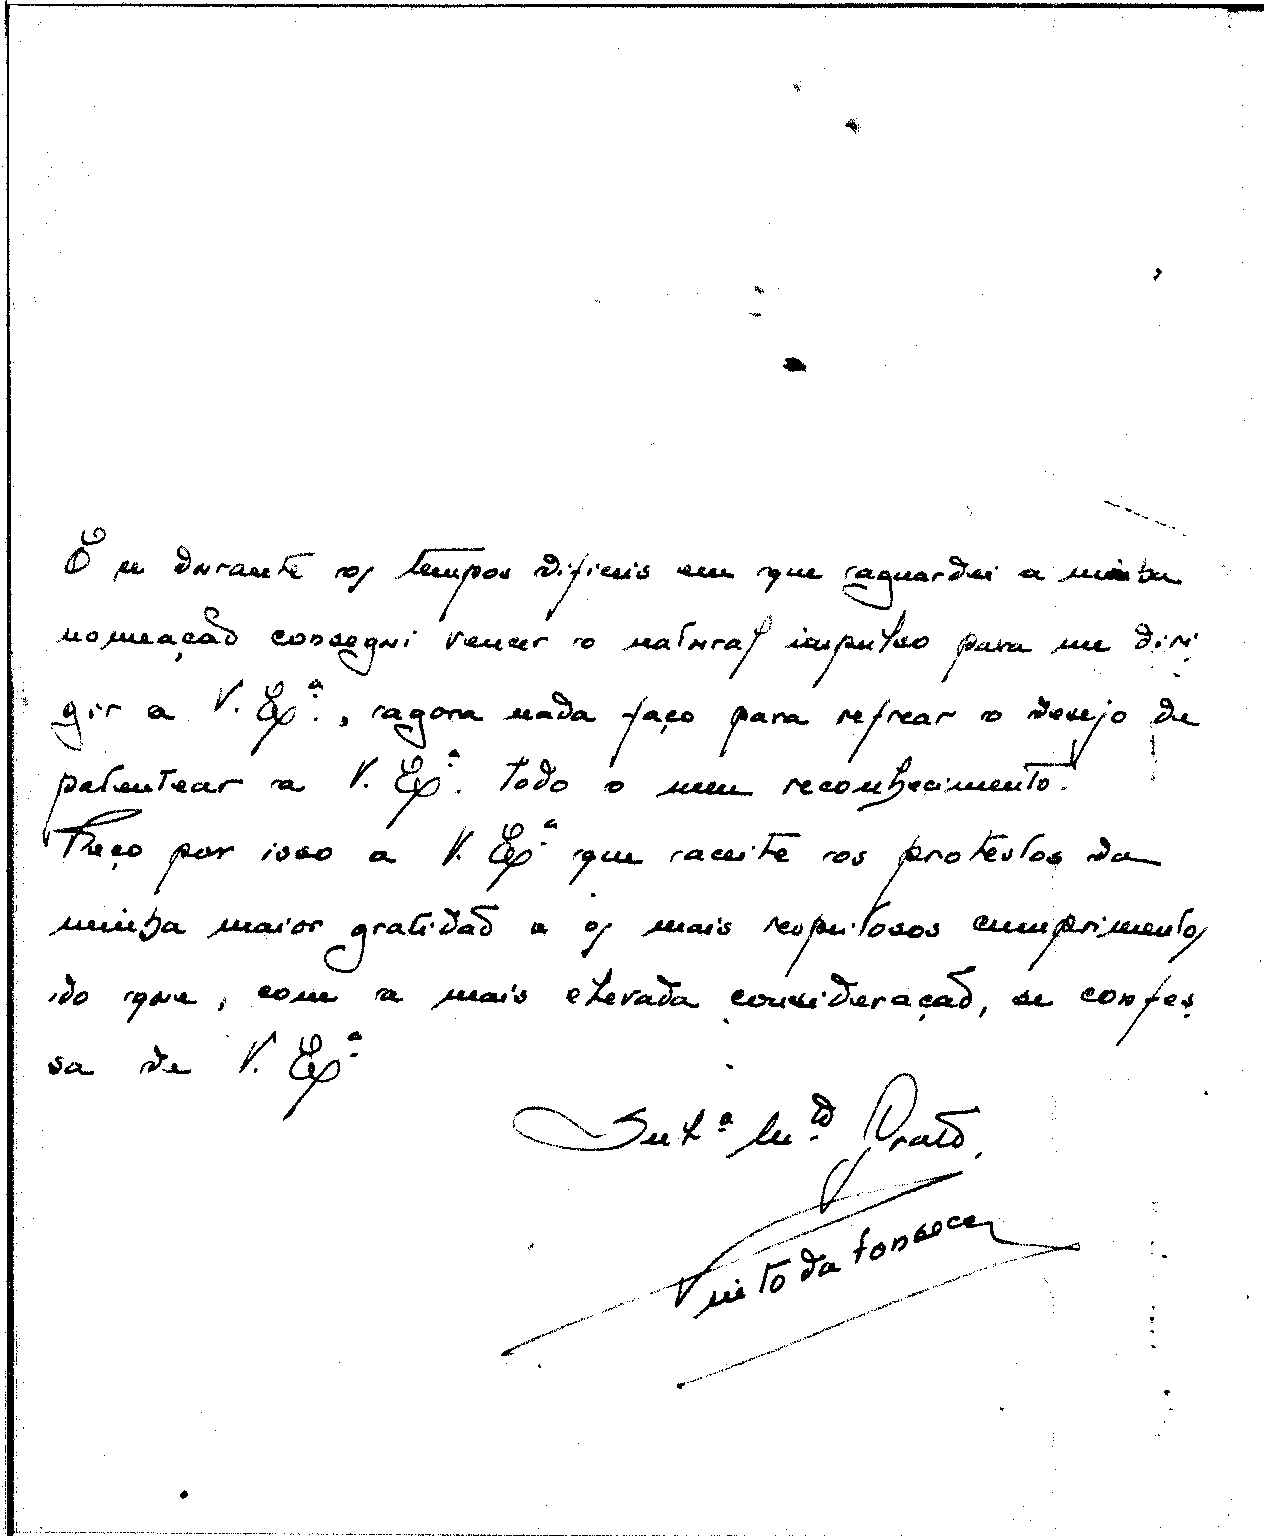 E se durante os tempos dificeis em que aguardei a minha
nomeação consegui vencer o natural impulso para me diri
gir a V. Exª., agora nada faço para refrear o desejo de
patentear a V. Exª. todo o meu reconhecimento.
Peço por isso a V. Exª que aceite os protestos da
minha maior gratidão e os mais respeitosos cumprimentos
do que, com a mais elevada consideração, se confes
sa de V. Exª
Mtº Grato.
Pinto da Fonseca